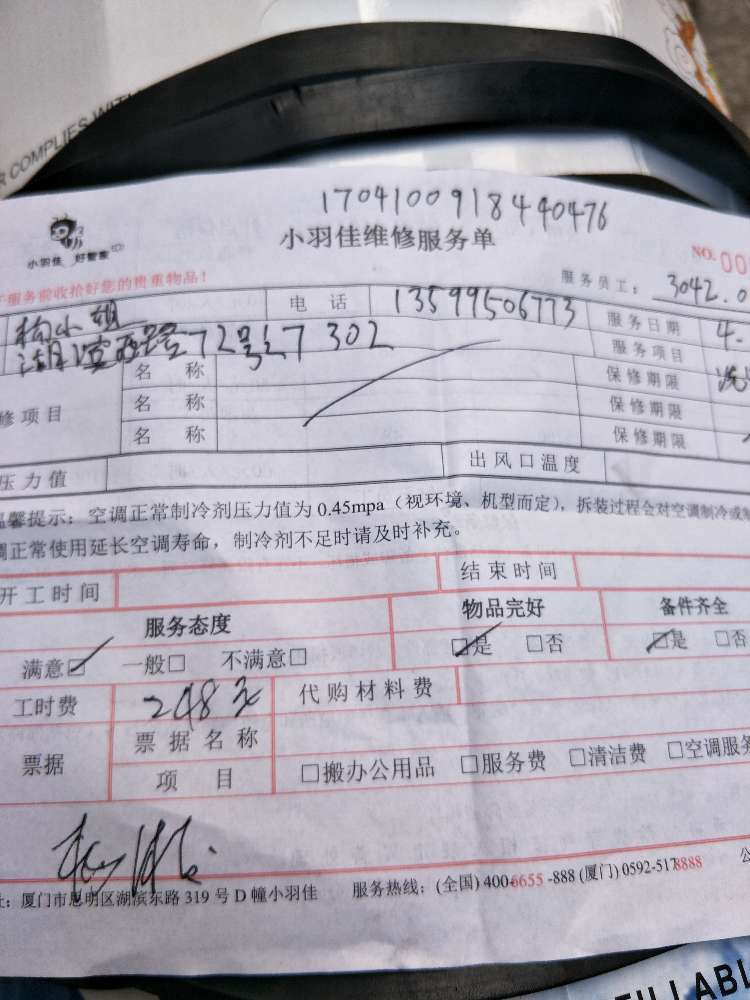 R COMPLIES WITH
1704100918440476
小羽佳 好管家
小羽佳维修服务单
NO. 00
服务前收拾好您的贵重物品！
服务员工： 3042.0
杨小姐 电话 13599506773 服务日期 4.
湖滨西路72号之7 302 服务项目
名称 保修期限
修项目 名称 保修期限
名称 保修期限
压力值 出风口温度
温馨提示：空调正常制冷剂压力值为 0.45mpa（视环境、机型而定），拆装过程会对空调制冷或制
调正常使用延长空调寿命，制冷剂不足时请及时补充。
开工时间 结束时间
服务态度 物品完好 备件齐全
满意☑ 一般□ 不满意□ ☑是 □否 ☑是 □否
工时费 248元 代购材料费
票据 票据名称
项目 □搬办公用品 □服务费 □清洁费 □空调服务
址：厦门市思明区湖滨东路 319 号 D 幢小羽佳 服务热线：(全国) 400-6655-888 (厦门) 0592-5178888 公
ILLABL